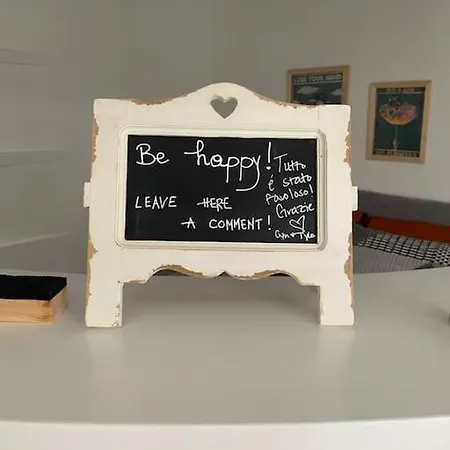 Be happy!
LEAVE HERE
A COMMENT!
Tutto
è stato
favoloso!
Grazie
LOSE YOUR MIND